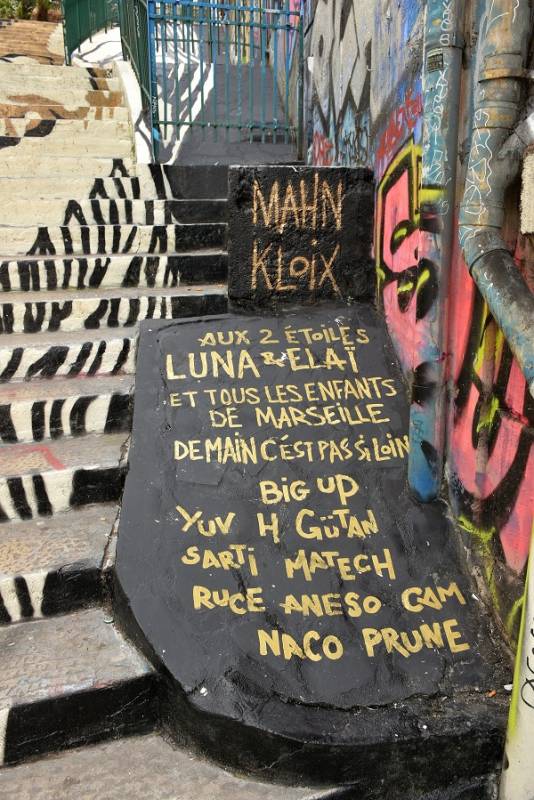 MAHN
KLOIX
AUX 2 ÉTOILES
LUNA & ELAÏ
ET TOUS LES ENFANTS
DE MARSEILLE
DEMAIN C'EST PAS SI LOIN
BIG UP
YUV H GÜTAN
SARTI MATECH
RUCE ANESO CAM
NACO PRUNE